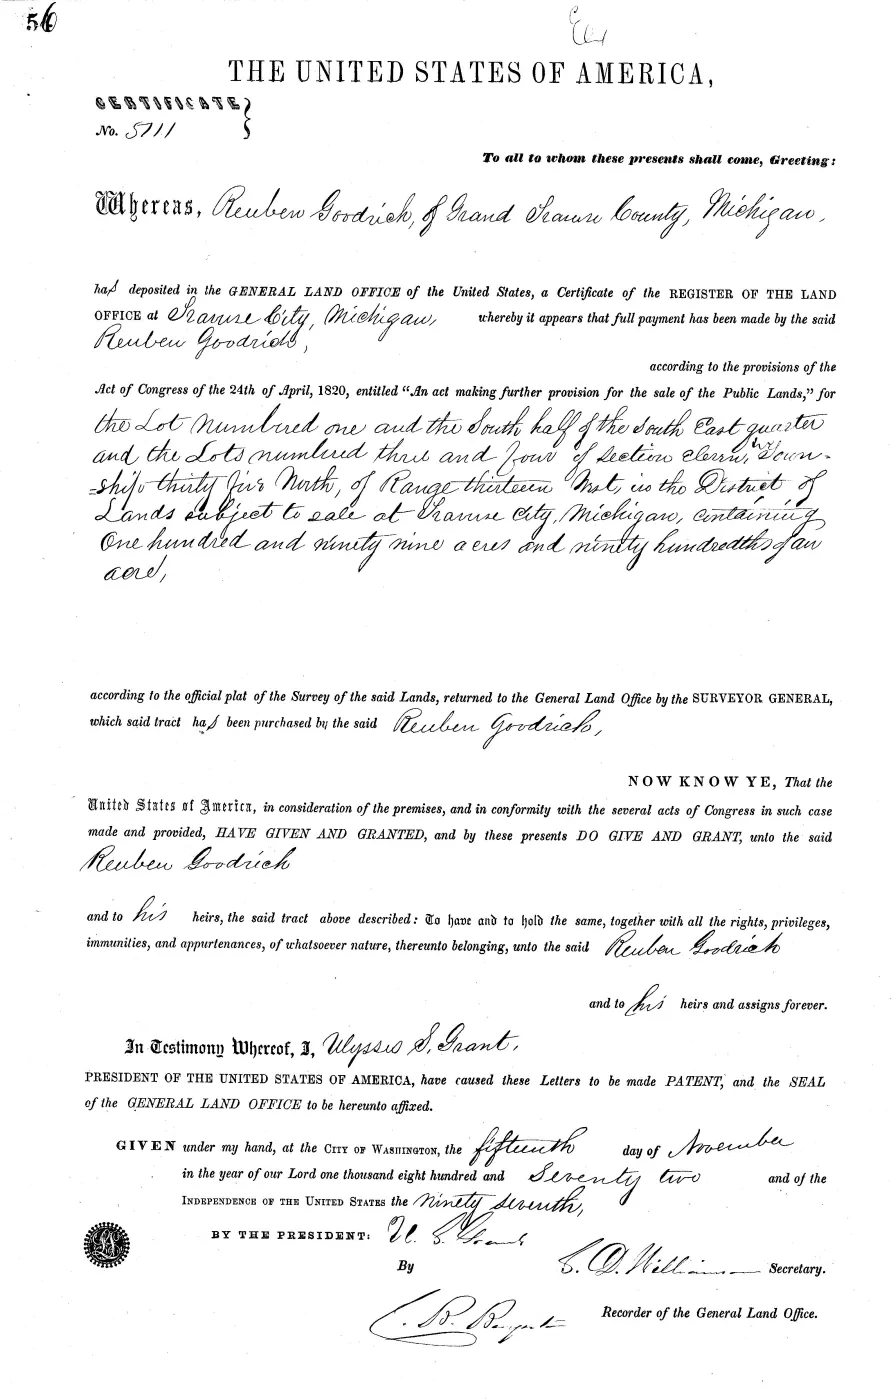 56
THE UNITED STATES OF AMERICA,
CERTIFICATE
No. 5711
To all to whom these presents shall come, Greeting:
Whereas, Reuben Goodrich, of Grand Traverse County, Michigan,
has deposited in the GENERAL LAND OFFICE of the United States, a Certificate of the REGISTER OF THE LAND
OFFICE at Traverse City, Michigan, whereby it appears that full payment has been made by the said
Reuben Goodrich,
according to the provisions of the
Act of Congress of the 24th of April, 1820, entitled “An act making further provision for the sale of the Public Lands,” for
the Lot numbered one and the South half of the South East quarter
and the Lots numbered three and four of section eleven, in Town-
-ship thirty five North, of Range thirteen West, in the District of
Lands subject to sale at Traverse City, Michigan, containing
One hundred and ninety nine acres and ninety hundredths of an
acre,
according to the official plat of the Survey of the said Lands, returned to the General Land Office by the SURVEYOR GENERAL,
which said tract has been purchased by the said Reuben Goodrich,
NOW KNOW YE, That the
United States of America, in consideration of the premises, and in conformity with the several acts of Congress in such case
made and provided, HAVE GIVEN AND GRANTED, and by these presents DO GIVE AND GRANT, unto the said
Reuben Goodrich
and to his heirs, the said tract above described: To have and to hold the same, together with all the rights, privileges,
immunities, and appurtenances, of whatsoever nature, thereunto belonging, unto the said Reuben Goodrich
and to his heirs and assigns forever.
In Testimony Whereof, I, Ulysses S. Grant,
PRESIDENT OF THE UNITED STATES OF AMERICA, have caused these Letters to be made PATENT, and the SEAL
of the GENERAL LAND OFFICE to be hereunto affixed.
GIVEN under my hand, at the CITY OF WASHINGTON, the fifteenth day of November
in the year of our Lord one thousand eight hundred and Seventy two and of the
INDEPENDENCE OF THE UNITED STATES the ninety seventh,
BY THE PRESIDENT: U. S. Grant
By S. D. Williamson Secretary.
Recorder of the General Land Office.